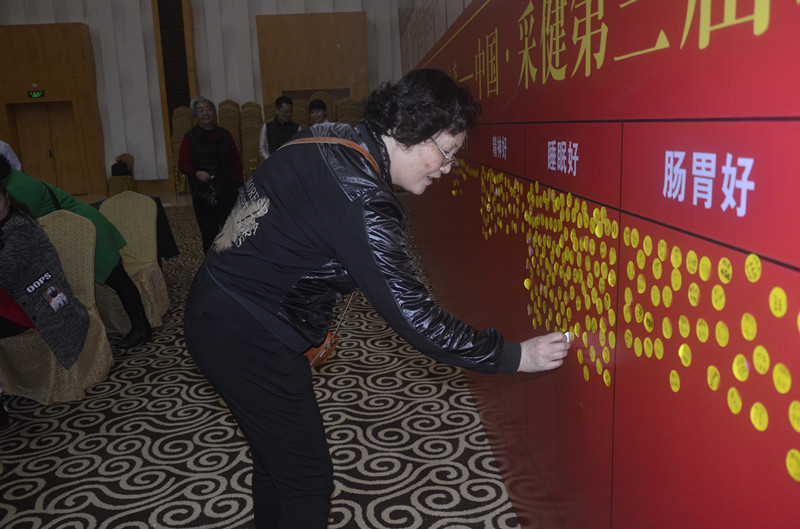 中国·采健第三届
精神好
睡眠好
肠胃好
OOPS